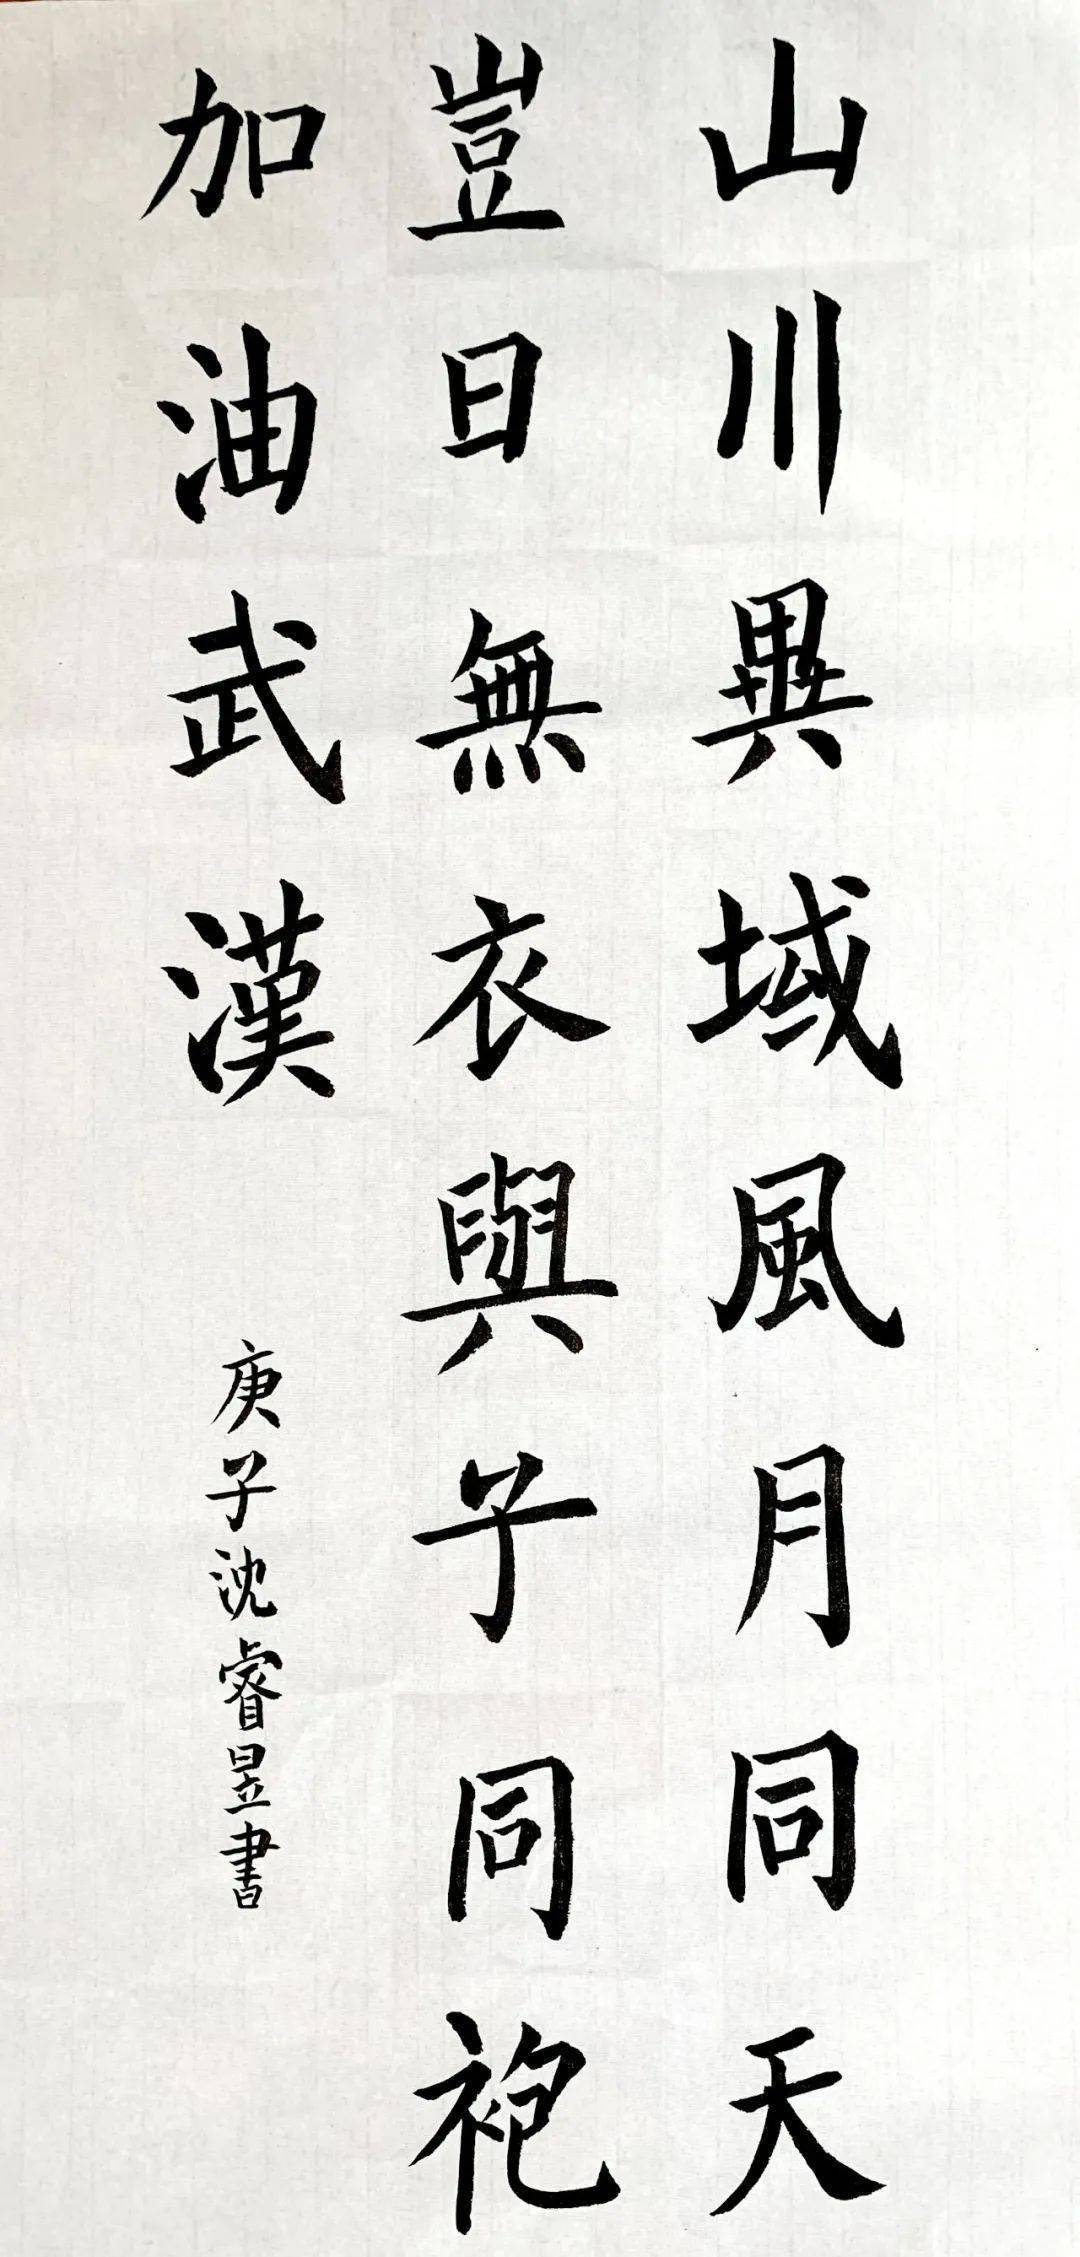 山川異域風月同天
豈日無衣與子同袍
加油武漢
庚子沈睿昱書